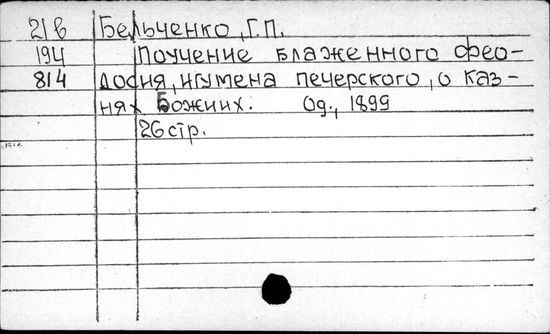 21в Бельченко, Г.П.
194 Поучение блаженного Фео-
814 досия, игумена печерского, о каз-
нях Божиих. Од., 1899
26 стр.